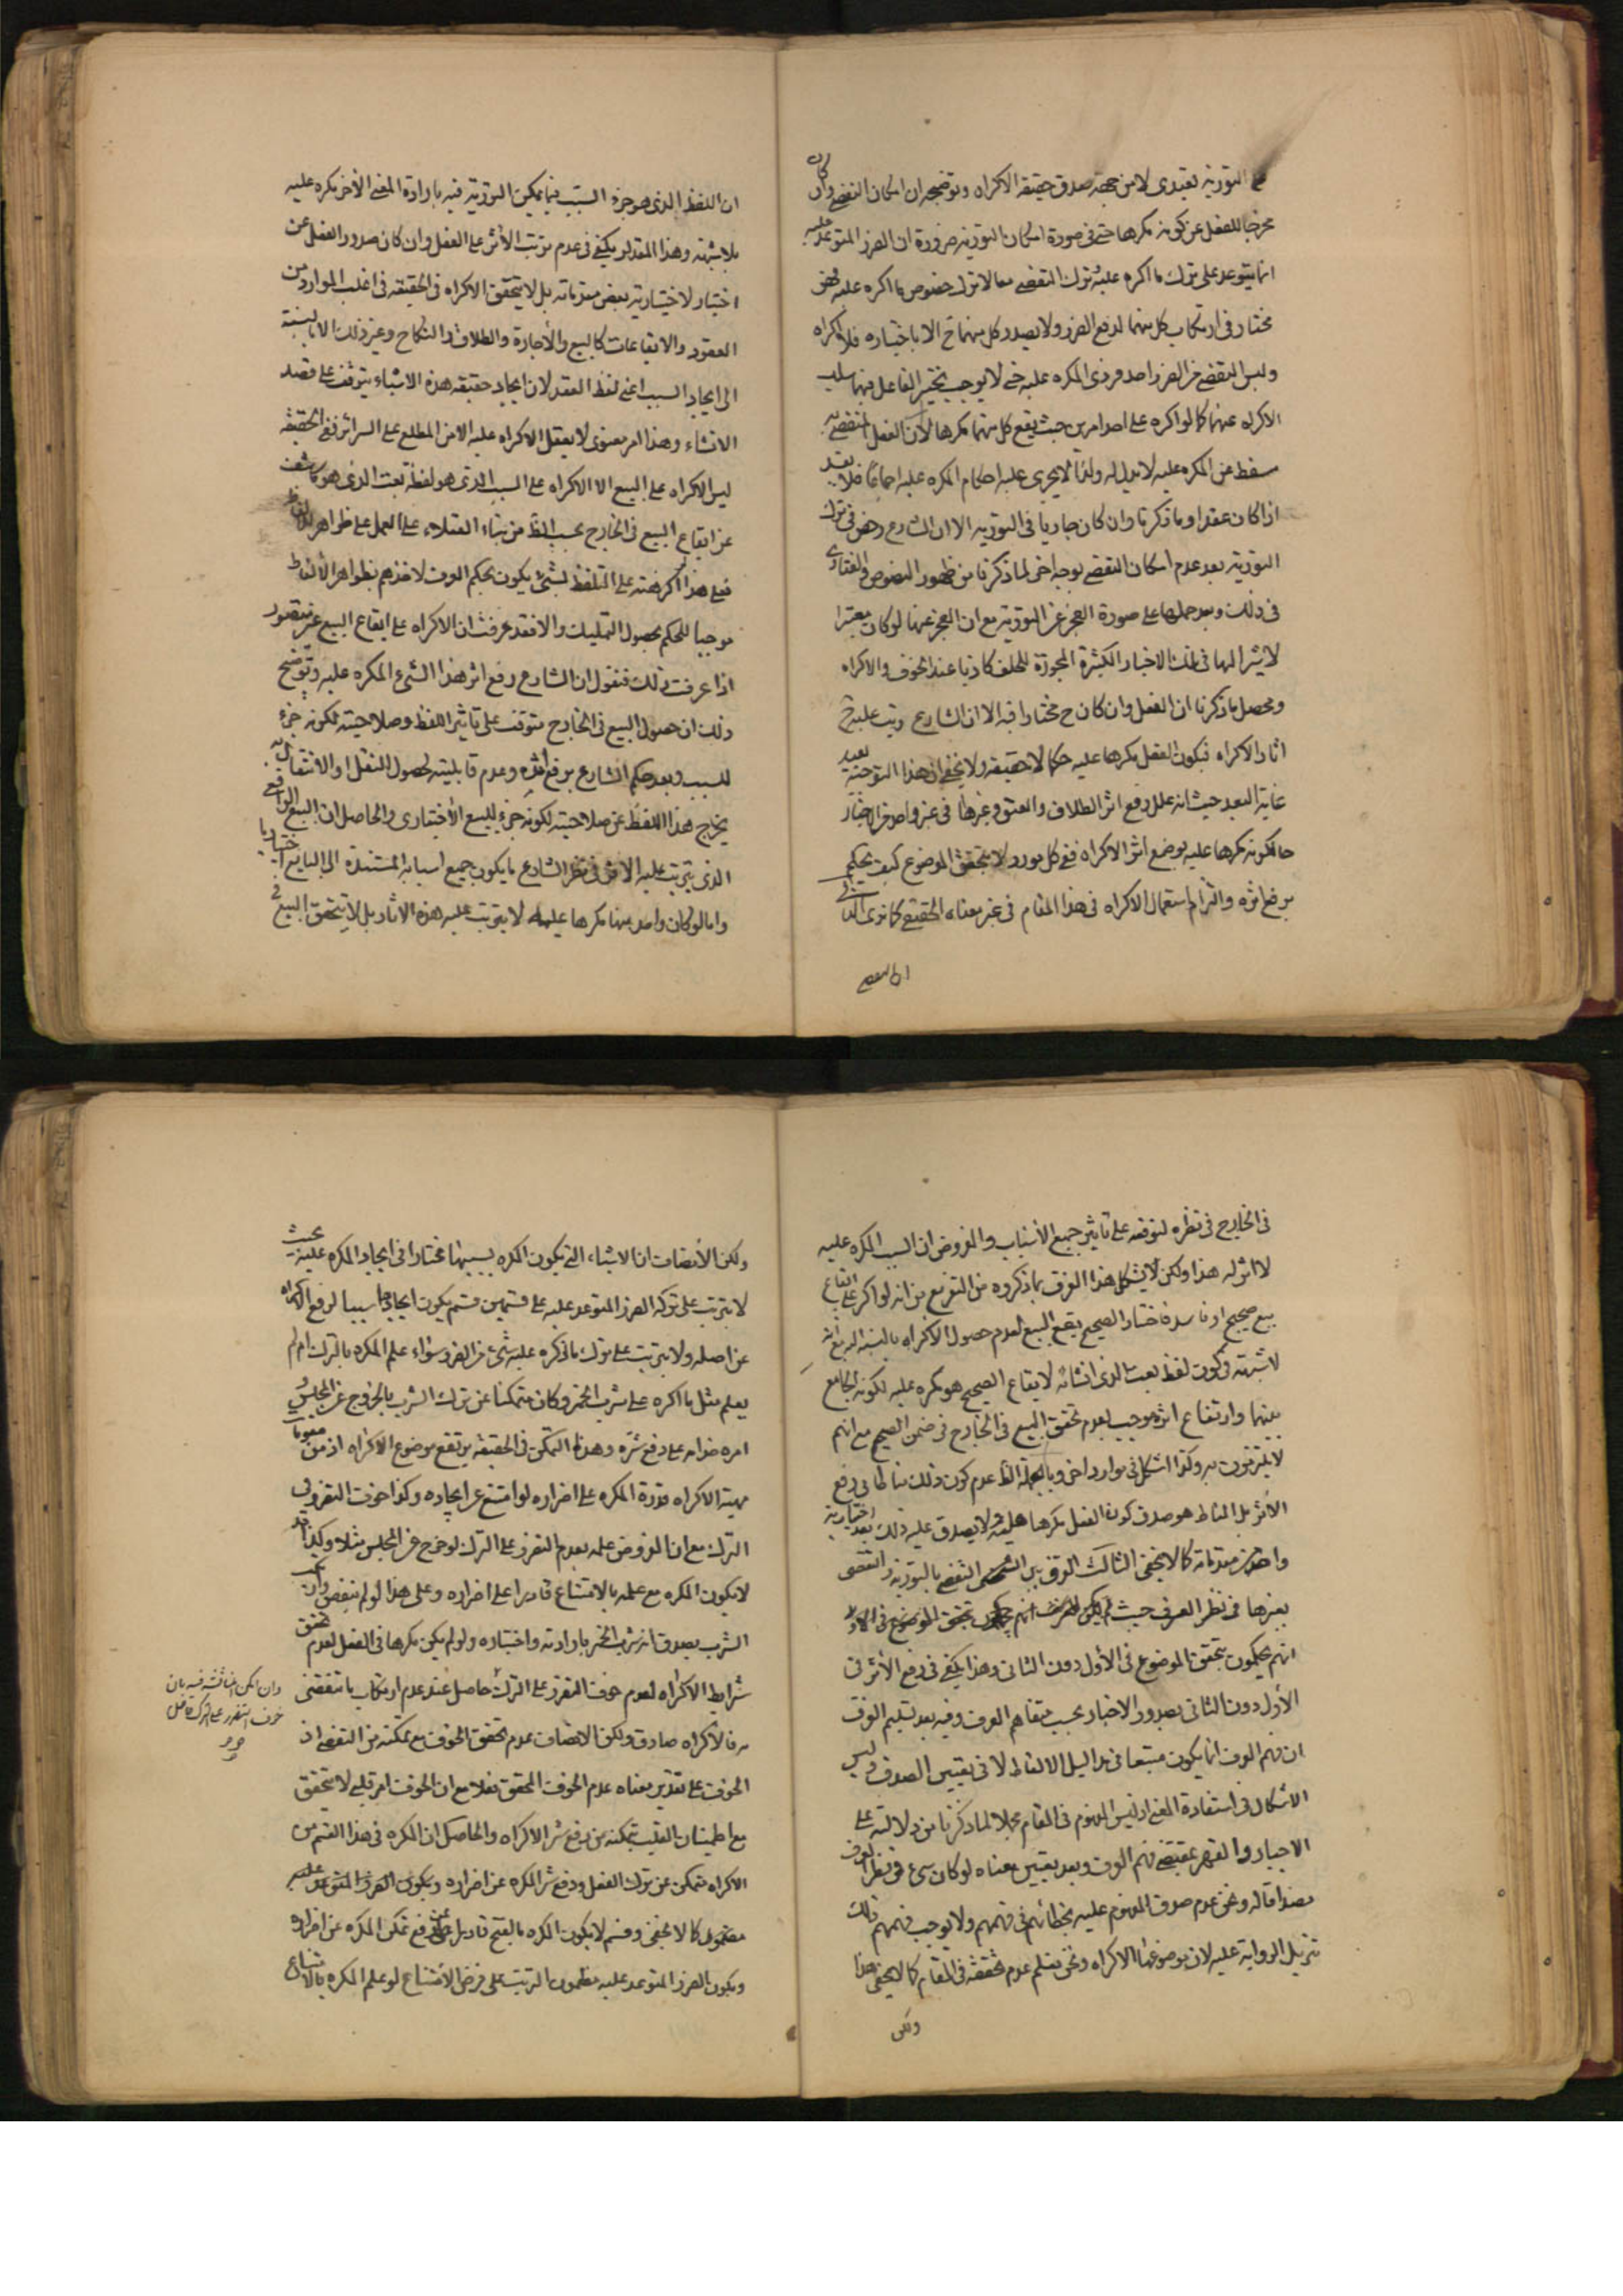 التورية تعبدى لا من جهة صدق حقيقة الاكراه وتوضيحه ان امكان التفصى وان كان
مخرجا للفعل عن كونه مكرها حتى فى صورة امكان التورية ضرورة ان الضرر المتوعد عليه
انما يتوعد على ترك ما اكره عليه وترك التفصى معا لا ترك خصوص ما اكره عليه فهو
مختار فى ارتكاب كل منهما لدفع الضرر ولا يصدر كل منهما ح الا باختياره فلا اكراه
وليس التفصى من الضرر احد فردى المكره عليه حتى لا يوجب تخيير الفاعل فيهما سلب
الاكراه عنهما كما لو اكره على احد امرين حيث يقع كل منهما مكرها لان الفعل المتفصى به
مسقط عن المكره عليه لا بدل له ولذا لا يجرى عليه احكام المكره عليه اجماعا فلا يفسد
اذا كان عقدا وما ذكرنا وان كان جاريا فى التورية الا ان الشارع رخص فى ترك
التورية بعد عدم امكان التفصى بوجه اخر لما ذكرنا من ظهور النصوص والفتاوى
فى ذلك وبعد حملها على صورة العجز عن التورية مع ان العجز عنها لو كان معتبرا
لاشير اليها فى تلك الاخبار الكثيرة المجوزة للحلف كاذبا عند الخوف والاكراه
ومحصل ما ذكرنا ان الفعل وان كان ح مختارا فيه الا ان الشارع رتب عليه ح
اثار الاكراه فيكون الفعل مكرها عليه حكما لا حقيقة ولا يخفى ان هذا التوجيه بعيد
غاية البعد حيث انه علل رفع اثر الطلاق والعتق وغيرها فى غير واحد من الاخبار
حالكونه مكرها عليه بوضع اثر الاكراه ففى كل مورد لا يتحقق الموضوع كيف يحكم
برفع اثره والتزام استعمال الاكراه فى هذا المقام فى غير معناه الحقيقى كما ترى الثانى
ان اللفظ الذى هو جزء السبب فيما يمكن التورية فيه بارادة المعنى الأخر مكره عليه
بلا شبهة وهذا المقدار يكفى فى عدم ترتب الأثر على الفعل وان كان صدور الفعل عن
اختيار لاختيارية بعض مقدماته بل لا يتحقق الاكراه فى الحقيقة فى اغلب الموارد من
العقود والايقاعات كالبيع والأجارة والطلاق والنكاح وغير ذلك الا بالنسبة
الى ايجاد السبب اعنى لفظ العقد لان ايجاد حقيقة هذه الاشياء يتوقف على قصد
الانشاء وهذا امر معنوى لا يعقل الاكراه عليه الا من المطلع على السرائر ففى الحقيقة
ليس الاكراه على البيع الا الاكراه على السبب الذى هو لفظة بعت الذى هو كاشف
عن ايقاع البيع فى الخارج بحسب الظ من بناء العقلاء على العمل على ظواهر الالفاظ
فعلى هذا اكراهه على التلفظ بشىء يكون بحكم العرف لاخذهم بظواهر الألفاظ
موجبا للحكم بحصول التمليك والا فقد عرفت ان الاكراه على ايقاع البيع غير مقصور
اذا عرفت ذلك فنقول ان الشارع رفع اثر هذا الشىء المكره عليه وتوضيح
ذلك ان حصول البيع فى الخارج متوقف على تاثير اللفظ وصلاحيته لكونه جزء
للسبب وبعد حكم الشارع برفع اثره وعدم قابليته لحصول النقل او الانتقال به
يخرج هذا اللفظ عن صلاحيته لكونه جزء للبيع الأختيارى والحاصل ان البيع الواقع
الذى يترتب عليه الاثر فى نظر الشارع ما يكون جميع اسبابه المستندة الى البايع اختياريا
واما لو كان واحد منها مكرها عليه لا يترتب عليه هذه الاثار بل لا يتحقق البيع
فى الخارج فى نظره لتوقفه على تاثير جميع الأسباب والمفروض ان السبب المكره عليه
لا اثر له هذا ولكن لا يشكل هذا الفرق بما ذكروه من التفريع من انه لو اكره على ايقاع
بيع صحيح او فاسد فاختار الصحيح يقع البيع لعدم حصول الاكراه بالنسبة اليه مع انه
لا شبهة فى كون لفظ بعت الذى انشائه لايقاع الصحيح هو مكره عليه لكونه الجامع
بينهما وارتفاع اثره موجب لعدم تحقق البيع فى الخارج فى ضمن الصحيح مع انهم
لا يلتزمون به وكذا اشكل فى موارد اخر وبالجملة الظ عدم كون ذلك مناطا فى رفع
الأثر بل المناط هو صدق كون الفعل مكرها عليه ولا يصدق عليه ذلك بعد اختيارية
واحد من مقدماته كما لا يخفى الثالث الفرق بين التفصى بالتورية والتفصى
بغيرها فى نظر العرف حيث
انهم يحكمون بتحقق الموضوع فى الأول دون الثانى وهذا يكفى فى رفع الأثر فى
الأول دون الثانى بعد ورود الاخبار بحسب متفاهم العرف وفيه بعد تسليم الفرق
ان فهم العرف انما يكون متبعا فى مداليل الالفاظ لا فى تعيين المصدق وليس
الاشكال فى استفادة المعنى اذ ليس المفهوم فى المقام مجملا لما ذكرنا من دلالته على
الاجبار والقهر بمقتضى فهم العرف وبعد تعيين معناه لو كان شىء فى نظر العرف
مصداقا له ونحن عدم صدق المفهوم عليه بخطائهم فى فهمهم ولا يوجب فهمهم ذلك
تنزيل الرواية عليه لان موضوعها الاكراه ونحن نعلم عدم تحققه فى المقام كما لا يخفى هذا
ولكن
ولكن الأنصاف ان الاشياء التى يكون المكره بسببها مختارا فى ايجاد المكره عليه بحيث
لا يترتب على تركه الضرر المتوعد عليه على قسمين قسم يكون ايجادها سببا لرفع الاكراه
عن اصله ولا يترتب على ترك ما اكره عليه شىء من الضرر سواء علم المكره بالترك ام لم
يعلم مثل ما اكره على شرب الخمر وكان متمكنا عن ترك الشرب بالخروج عن المجلس
امره خدامه على دفع شره وهذا التمكن فى الحقيقة يرتفع موضوع الاكراه اذ من مقومات
مهية الاكراه قدرة المكره على اضراره لو امتنع عن ايجاده وكذا خوف التضرر فى
الترك مع ان المفروض علمه بعدم التضرر على الترك لو خرج عن المجلس مثلا وكذا قد
لا يكون المكره مع علمه بالامتناع قادرا على اضراره وعلى هذا لو لم يتفص وارتكب
الشرب يصدق انه شرب الخمر بارادته واختياره ولو لم يكن مكرها فى الفعل لعدم تحقق
شرايط الاكراه لعدم خوف التضرر على الترك حاصل عند عدم ارتكاب ما يتفصى
به فالاكراه صادق ولكن الانصاف عدم تحقق الخوف مع تمكنه من التفصى اذ
الخوف على تقدير معناه عدم الخوف المحقق فعلا مع ان الخوف امر قلبى لا يتحقق
مع اطمينان القلب بتمكنه من دفع شر الاكراه والحاصل ان المكره فى هذا القسم من
الاكراه متمكن عن ترك الفعل ودفع شر المكره عن اضراره ويكون الضرر المتوعد عليه
كما لا يخفى وقسم لا يكون المكره بالفتح قادرا على دفع تمكن المكره عن اضراره
ويكون الضرر المتوعد عليه مظنون الترتب على فرض الأمتناع لو علم المكره بالامتناع
وان امكن المناقشة فيه بان
خوف التضرر على الترك حاصل